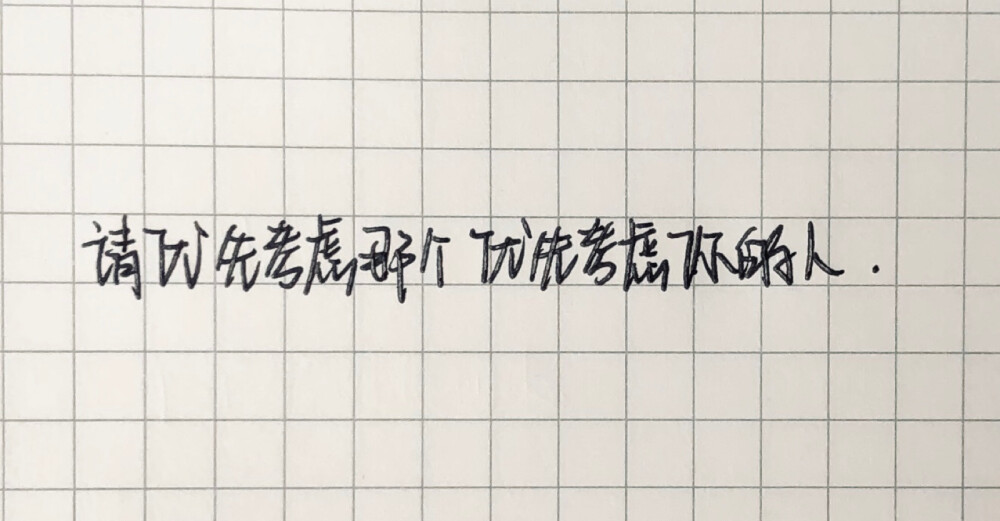 请优先考虑那个优先考虑你的人.